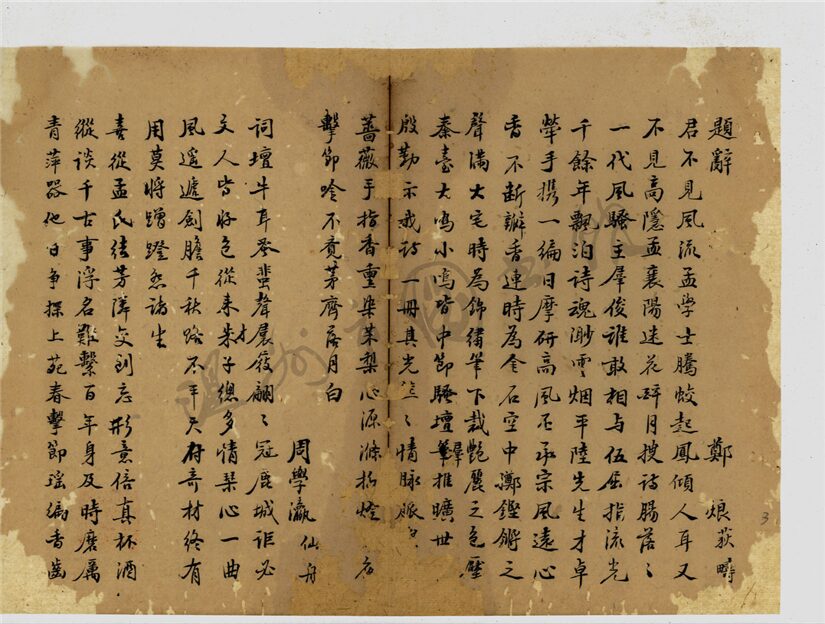 題辭　鄭烺荻疇
君不見風流孟學士騰蛟起鳳傾人耳又
不見高隱孟襄陽迷花醉月搜詩腸落〻
一代風騷主羣俊誰敢相與伍屈指流光
千餘年飄泊詩魂渺雲烟平陸先生才卓
犖手攜一編日摩研高風丕承宗風遠心
香不斷瓣香連時為金石空中擲鏗鏘之
聲滿大宅時為錦繡筆下裁艷麗之色壓
秦臺大鳴小鳴皆中節騷壇羣推曠世
殷勤示我詩一冊其光 〻情脉脈
薔薇手指香重染茉梨心源滌 燈
擊節吟不竟茅齋落月白
周學瀛仙舟
詞壇牛耳發蜚聲展後翩〻冠鹿城詎必
文人皆好色從來才子總多情琴心一曲
風遥遞劍膽千秋路不平天府奇材終有
用莫將蹭蹬怨諸生
喜從孟氏結芳隣交到忘形意倍真杯酒
縱談千古事浮名難繫百年身及時磨厲
青萍器他日争探上苑春擊節瑤編香齒
3